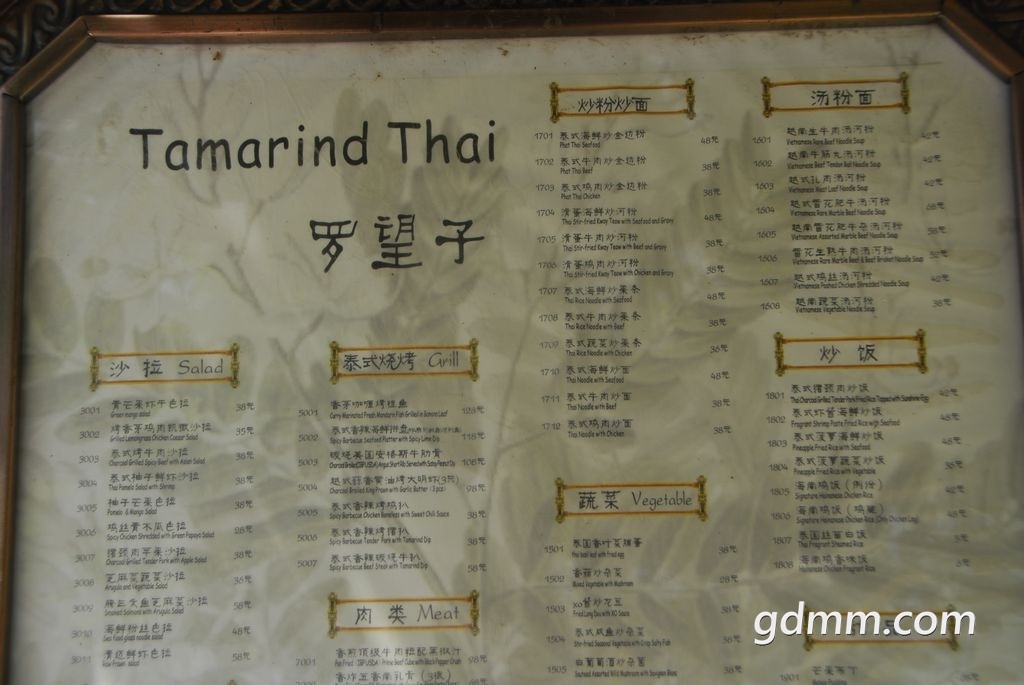 Tamarind Thai
罗望子
沙拉 Salad
3001 青芒果虾干色拉 38元
Green mango salad
3002 烤香茅鸡肉凯撒沙拉 35元
Grilled Lemongrass Chicken Caesar Salad
3003 泰式烤牛肉沙拉 38元
Charcoal Grilled Spicy Beef with Asian Salad
3004 泰式柚子鲜虾沙拉 38元
Thai Pomelo Salad with Shrimp
3005 柚子芒果色拉 38元
Pomelo & Mango Salad
3006 鸡丝青木瓜色拉 28元
Spicy Chicken Shredded with Green Papaya Salad
3007 猪颈肉苹果沙拉 38元
Charcoal Grilled Tender Pork with Apple Salad
3008 芝麻菜蔬菜沙拉
Arugula and Vegetable Salad
3009 腌三文鱼芝麻菜沙拉 58元
Smoked Salmond with Arugula Salad
3010 海鲜粉丝色拉 48元
Sea food glass noodle salad
3011 青边鲜虾色拉 58元
泰式烧烤 Grill
5001 香茅咖喱烤桂鱼 128元
Curry Marinated Fresh Mandarin Fish Grilled in Banana Leaf
5002 泰式香辣海鲜拼盘 118元
Spicy Barbecue Seafood Platter with Spicy Lime Dip
5003 碳烧美国安格斯牛肋骨 108元
5004 越式蒜香黄油烤大明虾(3只) 98元
Charcoal Broiled King Prawn with Garlic Butter (3pcs)
5005 泰式香辣烤鸡扒 38元
Spicy Barbecue Chicken Boneless with Sweet Chili Sauce
5006 泰式香辣烤猪扒 38元
Spicy Barbecue Tender Pork with Tamarind Dip
5007 泰式香辣碳烧牛扒 38元
Spicy Barbecue Beef Steak with Tamarind Dip
肉类 Meat
7001 香煎顶级牛肉粒配黑椒汁 98元
炒粉炒面
1701 泰式海鲜炒金边粉 48元
Phat Thai Seafood
1702 泰式牛肉炒金边粉 38元
Phat Thai Beef
1703 泰式鸡肉炒金边粉 38元
Phat Thai Chicken
1704 滑蛋海鲜炒河粉 48元
Thai Stir-fried Kway Teow with Seafood and Gravy
1705 滑蛋牛肉炒河粉 38元
Thai Stir-fried Kway Teow with Beef and Gravy
1706 滑蛋鸡肉炒河粉 38元
Thai Stir-fried Kway Teow with Chicken and Gravy
1707 泰式海鲜炒粿条 48元
Thai Rice Noodle with Seafood
1708 泰式牛肉炒粿条 38元
Thai Rice Noodle with Beef
1709 泰式蔬菜炒粿条 36元
Thai Rice Noodle with Chicken
1710 泰式海鲜炒面 48元
Thai Noodle with Seafood
1711 泰式牛肉炒面 38元
Thai Noodle with Beef
1712 泰式鸡肉炒面 38元
Thai Noodle with Chicken
蔬菜 Vegetable
1501 泰国香叶菜煎蛋 38元
thai basil leaf with fried egg
1502 香菇炒杂菜 28元
Mixed Vegetable with Mushroom
1503 xo酱炒花豆 38元
Fried Long Bea with XO Sauce
1504 泰式咸鱼炒杂菜 38元
Stir-fried Seasonal Vegetable with Crisp Salty Fish
1505 白葡萄酒炒杂菌 38元
Sauteed Assorted Wild Mushroom with Spurgeon Blanc
汤粉面
1601 越南生牛肉汤河粉 42元
Vietnamese Rare Beef Noodle Soup
1602 越南牛筋丸汤河粉 42元
Vietnamese Beef Tendon Ball Noodle Soup
1603 越式扎肉汤河粉 42元
Vietnamese Meat Loaf Noodle Soup
1604 越式雪花肥牛汤河粉 68元
Vietnamese Rare Marble Beef Noodle Soup
1605 越南雪花肥牛杂汤河粉 58元
Vietnamese Assorted Marble Beef Noodle Soup
1606 雪花生熟牛肉汤河粉 52元
Vietnamese Rare Marble Beef & Beef Brisket Noodle Soup
1607 越式鸡丝汤河粉 42元
Vietnamese Poshed Chicken Shredded Noodle Soup
1608 越南蔬菜汤河粉 38元
Vietnamese Vegetable Noodle Soup
炒饭
1801 泰式猪颈肉炒饭 42元
Thai Charcoal Grilled Tender Pork Fried Rice Topped with Sunshine Egg
1802 泰式虾酱海鲜炒饭 48元
Fragrant Shrimp Paste Fried Rice with Seafood
1803 泰式菠萝海鲜炒饭 48元
Pineapple Fried Rice with Seafood
1804 泰式菠萝蔬菜炒饭 36元
Pineapple Fried Rice with Vegetable
1805 海南鸡饭(例份) 42元
Signature Hainanese Chicken Rice
1806 海南鸡饭(鸡腿) 48元
Signature Hainanese Chicken Rice (Only Chicken Leg)
1807 泰国丝苗白饭
Thai Fragrant Steamed Rice
1808 海南鸡香味饭
Hainanese Chicken Fragrant Rice
1901 芒果布丁
Mango Pudding
gdmm.com